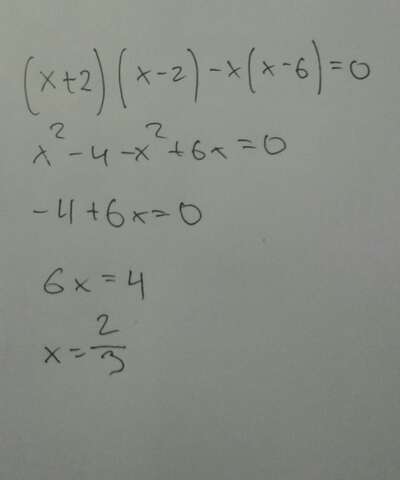 (x+2)(x-2)-x(x-6)=0
x²-4-x²+6x=0
-4+6x=0
6x=4
x=2/3